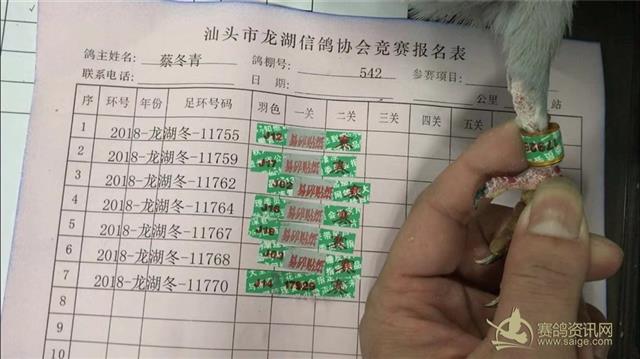 汕头市龙湖信鸽协会竞赛报名表
鸽主姓名 蔡冬青 鸽棚号 542 参赛项目
联系电话: 日期 公里 站
序 环号 年份 足环号码 羽色 一关 二关 三关 四关 五关
1 2018-龙湖冬-11755 J12 易碎贴纸 赛
2 2018-龙湖冬-11759 J17 易碎贴纸 赛
3 2018-龙湖冬-11762 J02 易碎贴纸 赛
4 2018-龙湖冬-11764 J16 易碎贴纸 赛
5 2018-龙湖冬-11767 易碎贴纸 赛
6 2018-龙湖冬-11768 易碎贴纸 赛
7 2018-龙湖冬-11770 J14 17929 赛
8
9
10
赛鸽资讯网
www.saige.com